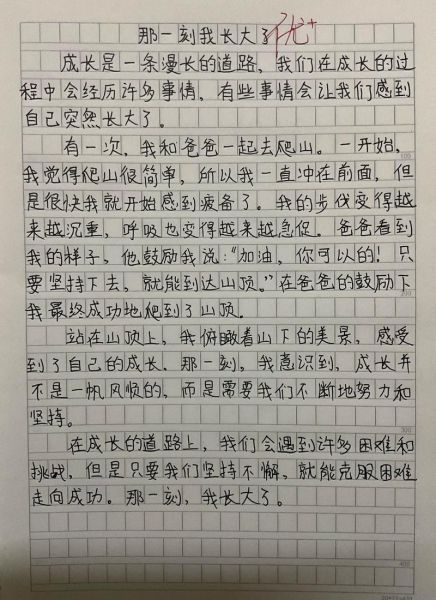 那一刻我长大了 优+
成长是一条漫长的道路，我们在成长的过
程中会经历许多事情，有些事情会让我们感到
自己突然长大了。
有一次，我和爸爸一起去爬山。一开始，
我觉得爬山很简单，所以我一直冲在前面，但
是很快我就开始感到疲备了。我的步伐变得越
来越沉重，呼吸也变得越来越急促。爸爸看到
我的样子，他鼓励我说："加油，你可以的！只
要坚持下去，就能到达山顶。"在爸爸的鼓励下
我最终成功地爬到了山顶。
站在山顶上，我俯瞰着山下的美景，感受
到了自己的成长。那一刻，我意识到，成长并
不是一帆风顺的，而是需要我们不断地努力和
坚持。
在成长的道路上，我们会遇到许多困难和
挑战，但是只要我们坚持不懈，就能克服困难
走向成功。那一刻，我长大了。
100
200
300
400